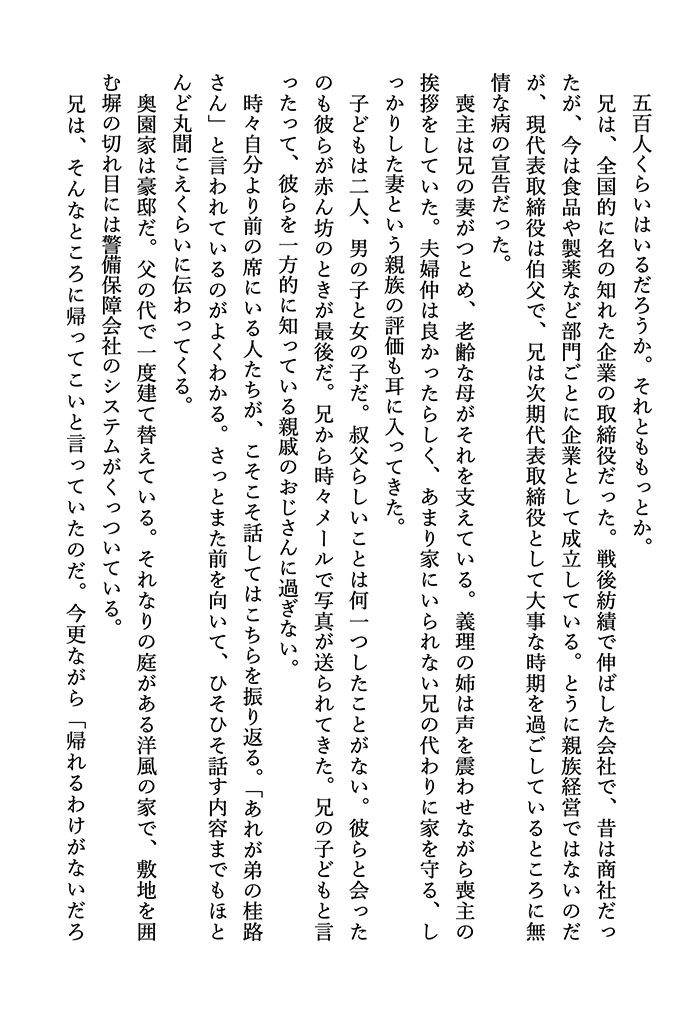 五百人くらいはいるだろうか。それとももっとか。
兄は、全国的に名の知れた企業の取締役だった。戦後紡績で伸ばした会社で、昔は商社だっ
たが、今は食品や製薬など部門ごとに企業として成立している。とうに親族経営ではないのだ
が、現代表取締役は伯父で、兄は次期代表取締役として大事な時期を過ごしているところに無
情な病の宣告だった。
喪主は兄の妻がつとめ、老齢な母がそれを支えている。義理の姉は声を震わせながら喪主の
挨拶をしていた。夫婦仲は良かったらしく、あまり家にいられない兄の代わりに家を守る、し
っかりした妻という親族の評価も耳に入ってきた。
子どもは二人、男の子と女の子だ。叔父らしいことは何一つしたことがない。彼らと会った
のも彼らが赤ん坊のときが最後だ。兄から時々メールで写真が送られてきた。兄の子どもと言
ったって、彼らを一方的に知っている親戚のおじさんに過ぎない。
時々自分より前の席にいる人たちが、こそこそ話してはこちらを振り返る。「あれが弟の桂路
さん」と言われているのがよくわかる。さっとまた前を向いて、ひそひそ話す内容までもほと
んど丸聞こえくらいに伝わってくる。
奥園家は豪邸だ。父の代で一度建て替えている。それなりの庭がある洋風の家で、敷地を囲
む塀の切れ目には警備保障会社のシステムがくっついている。
兄は、そんなところに帰ってこいと言っていたのだ。今更ながら「帰れるわけがないだろ